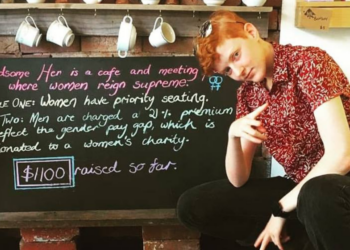 dsome Her is a cafe and meeting
where women reign supreme.
LE ONE: Women have priority seating.
Two: Men are charged a 21% premium
eflect the gender pay gap, which is
onated to a women's charity.
$1100 raised so far.